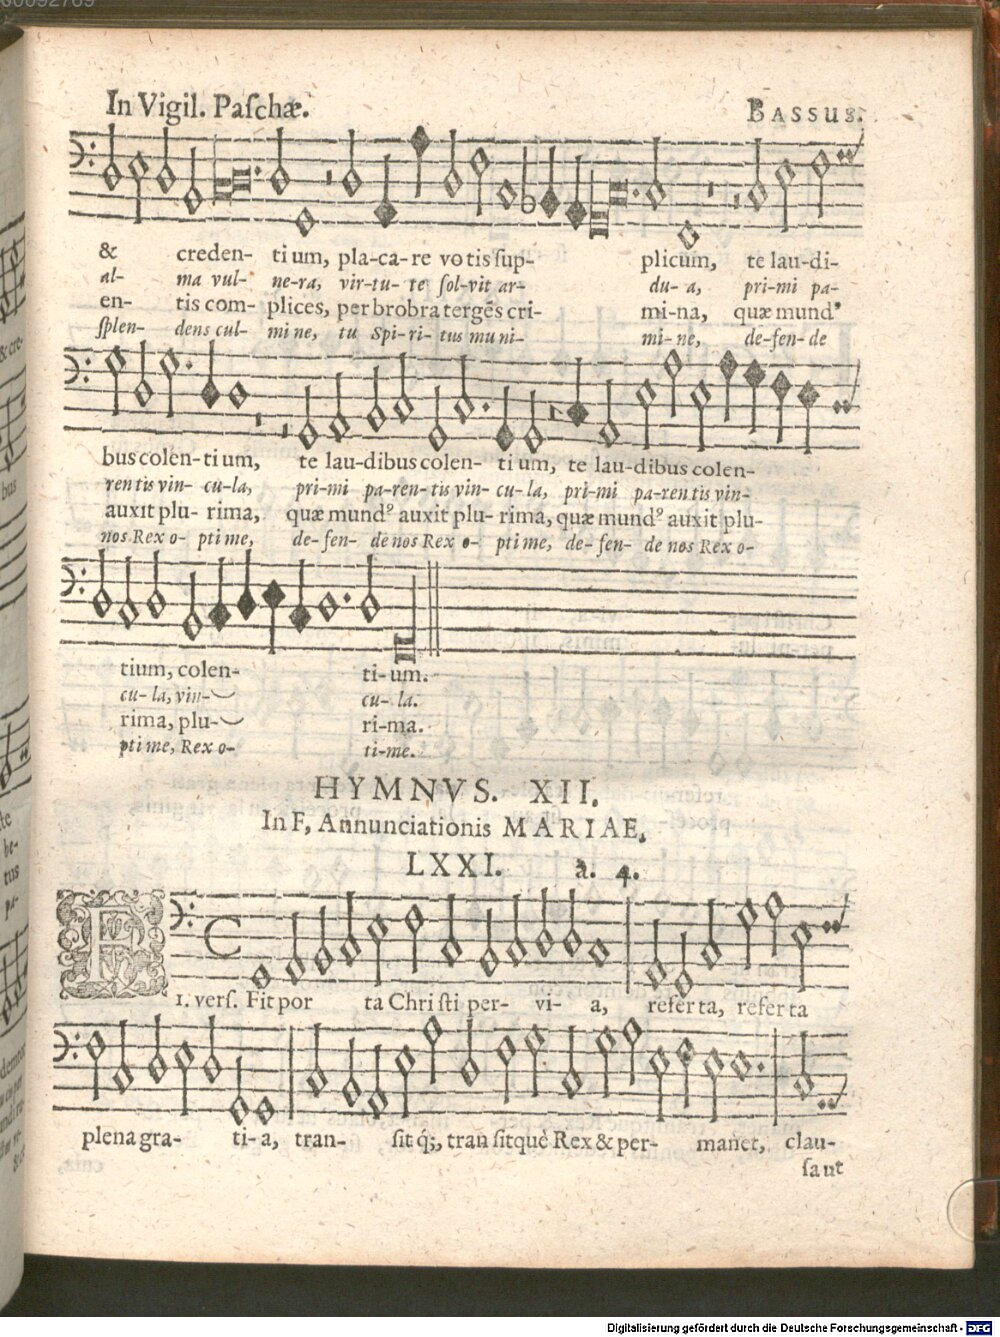 In Vigil. Paſchæ.
BASSUS.
& creden- ti um, pla-ca-re vo tis ſup- plicum, te lau-di-
al- ma vul- ne-ra, vir-tu- te ſol-vit ar- du- a, pri-mi pa-
en- tis com- plices, per brobra tergẽs cri- mi-na, quæ mundꝰ
ſplen- dens cul- mi ne, tu Spi-ri- tus mu ni- mi- ne, de-fen- de
bus colen- ti um, te lau-dibus colen- ti um, te lau-dibus colen-
ren tis vin- cu-la, pri-mi pa-ren- tis vin- cu- la, pri-mi pa-ren tis vin-
auxit plu- rima, quæ mundꝰ auxit plu- rima, quæ mundꝰ auxit plu-
nos Rex o- pti me, de- fen- de nos Rex o- pti me, de- fen- de nos Rex o-
tium, colen- ti- um.
cu- la, vin- cu- la.
rima, plu- ri-ma.
pti me, Rex o- ti-me.
HYMNVS. XII.
In F, Annunciationis MARIAE,
LXXI. à. 4.
F
1. verſ. Fit por ta Chri ſti per- vi- a, refer ta, refer ta
plena gra- ti- a, tran- ſit q́;, tran ſitquè Rex & per- manet, clau-
ſa ut
Digitalisierung gefördert durch die Deutsche Forschungsgemeinschaft - DFG